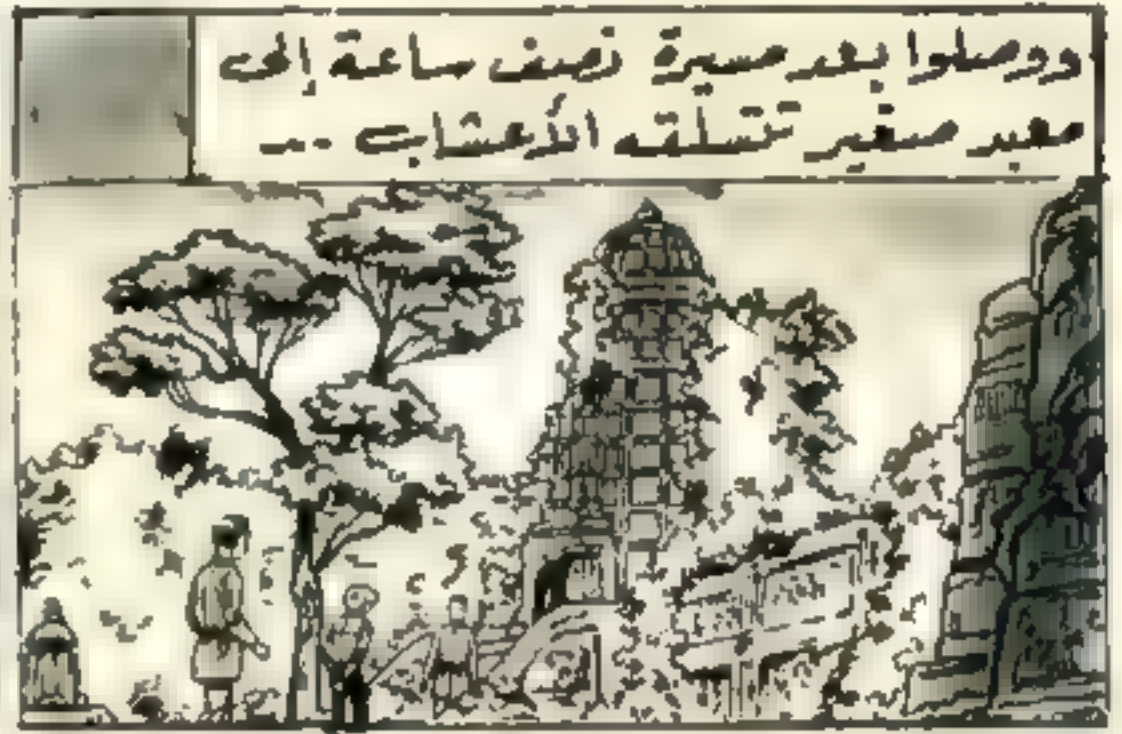 ووصلوا بعد مسيرة نصف ساعة إلى
معبد صغير تتسلقه الأعشاب ..